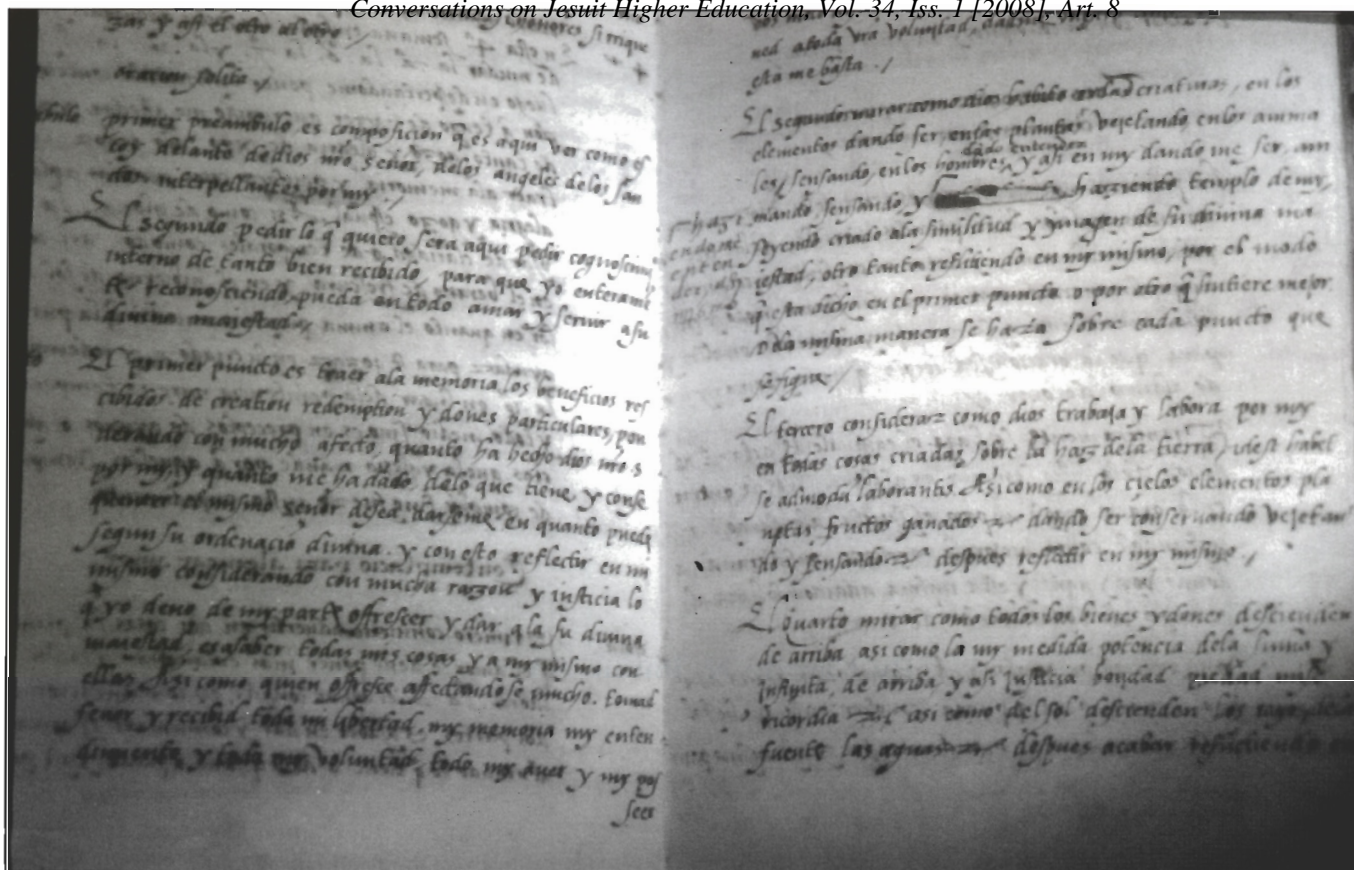 Conversations on Jesuit Higher Education, Vol. 34, Iss. 1 [2008], Art. 8
zar y asi el otro al otro /
oracion solita
primer preambulo es composicion q̃ es aqui ver como es
toy delante de dios nro señor, delos angeles delos san
dos interpellantes por my /
El segundo pedir lo q̃ quiero, sera aqui pedir cognoscimi
interno de tanto bien recibido, para que yo enterame
te reconosciendo pueda en todo amar y seruir a su
diuina maiestad
El primer puncto es traer ala memoria los beneficios res
cibidos de creation redemption y dones particulares, pon
derando con mucho afecto, quanto ha hecho dios nro s
por my, y quanto me ha dado delo que tiene y conse
quenter el mismo señor desea darseme en quanto puede
segun su ordenaciõ diuina. y con esto reflectir en mi
mismo considerando con mucha razon y iusticia lo
q̃ yo deuo de my parte offrescer y dar a la su diuina
maiestad, es asaber todas mis cosas y a my mismo con
ellas Asi como quien offresce affectandose mucho. tomad
señor y recibid toda mi libertad, my memoria my enten
dimiento y toda my voluntad, todo my auer y my pos
seer
ned atoda vra voluntad,
esta me basta. /
El segundo mirar como dios habita criaturas, en los
elementos dando ser, en las plantas vejetando, enlos anima
les sensando, en los hombres dando entender y asi en my dando me ser, ani
mando sensando, y haziendo templo de my,
hazi
endome
enten
der, asi
seyendo criado ala similitud y ymagen de su diuina ma
iestad, otro tanto reflitiendo en my mismo, por el modo
q̃ esta dicho en el primer puncto o por otro q̃ sintiere mejor
dela misma manera se hara sobre cada puncto que
se sigue /
El tercero considerar como dios trabaja y labora por my
en todas cosas criadas sobre la haz dela tierra, idest habet
se admodũ laborantis. Asi como en los cielos elementos pla
ntas fructos ganados &c dando ser conseruando vejetan
do y sensando &c despues reflectir en my mismo. /
El quarto mirar como todos los bienes y dones descienden
de arriba asi como la my medida potencia dela suma y
infinita, de arriba y asi justicia bondad piedad mise
ricordia &c asi como del sol descienden los rayos dela
fuente las aguas &c despues acabar reflictiendo en